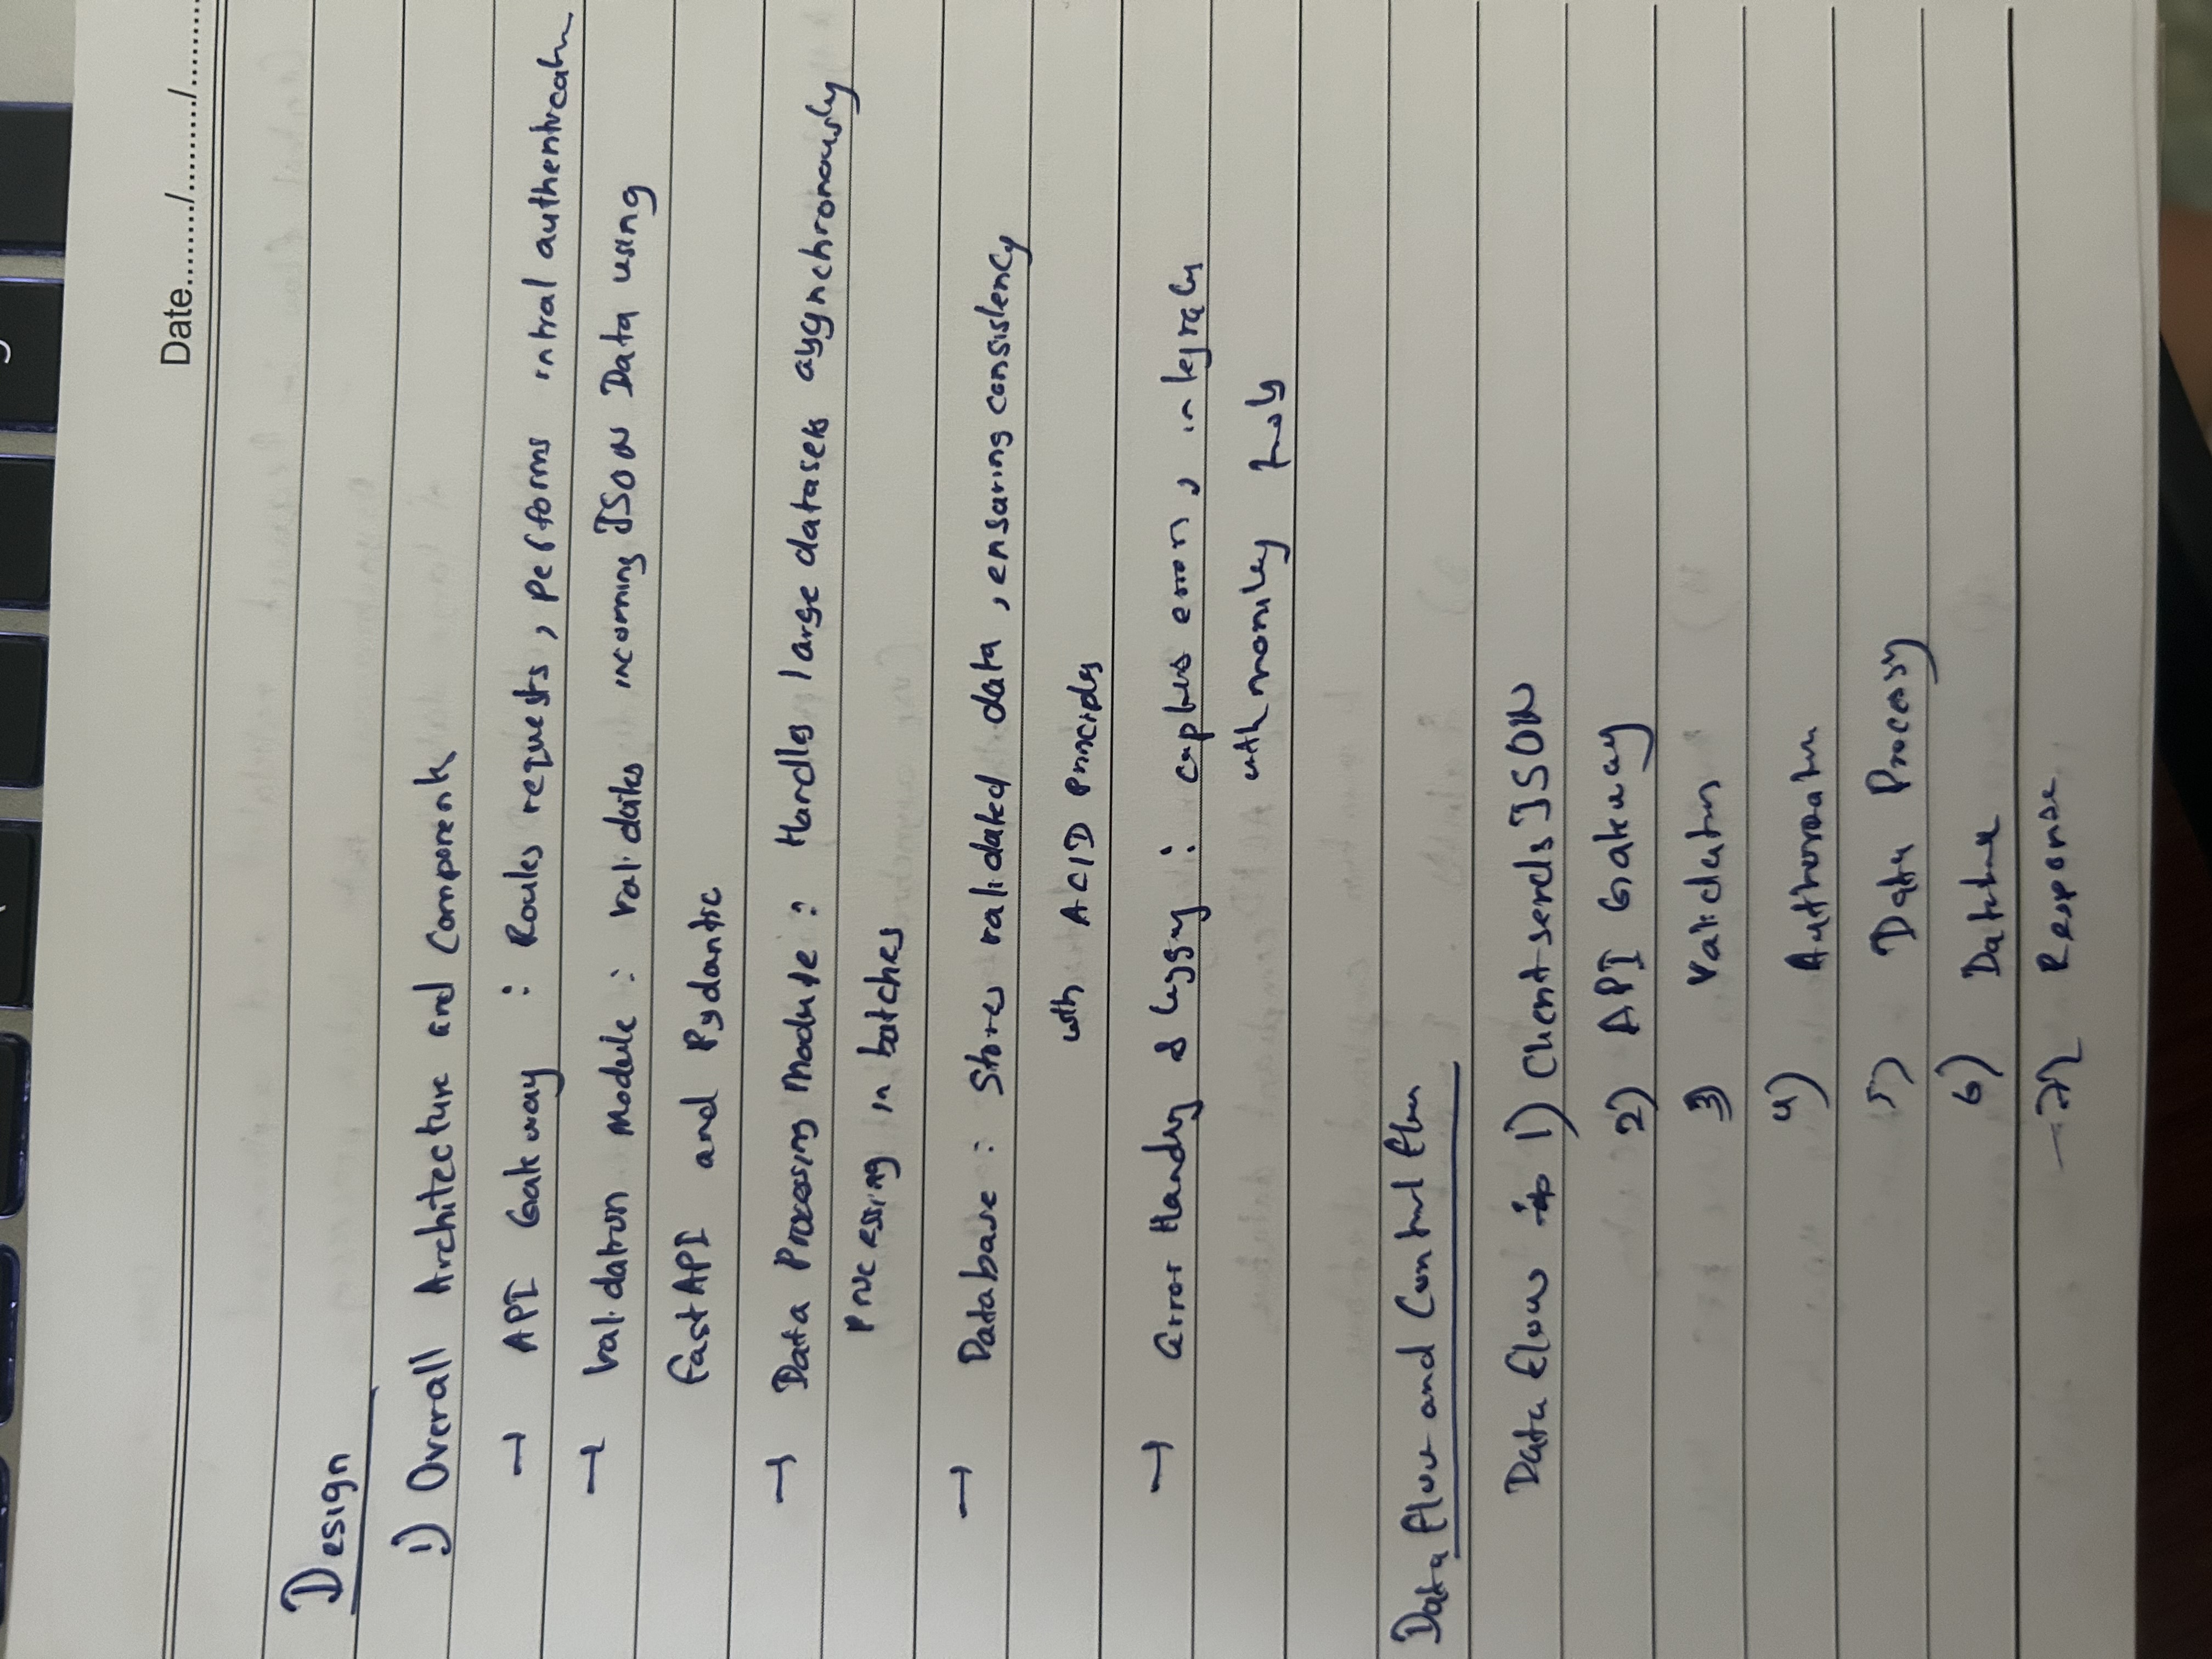 Date......../........./.........
Design
1) Overall Architecture and Components
→ API Gateway : Routes requests, performs initial authentication
→ Validation Module : Validates incoming JSON Data using
FastAPI and Pydantic
→ Data Processing Module : Handles large datasets asynchronously
Processing in batches
→ Database : Stores validated data, ensuring consistency
with ACID Principles
→ Error Handling & logging : captures errors, integrates
with monitoring tools
Data flow and Control flow
Data flow : 1) Client sends JSON
2) API Gateway
3) Validation
4) Authorization
5) Data Processing
6) Database
7) Response